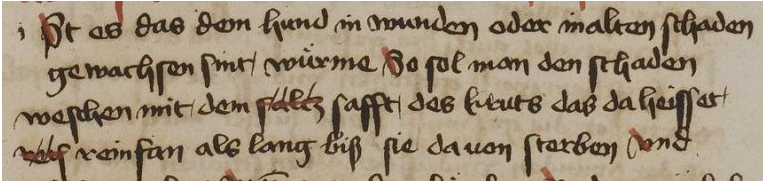 Ist es das dem hund in wunden oder in alten schaden
gewachsen sint würme So sol man den schaden
weschen mit dem saltz safft des kruts das da heisset
reinfan als lang biß sie da von sterben Vnd